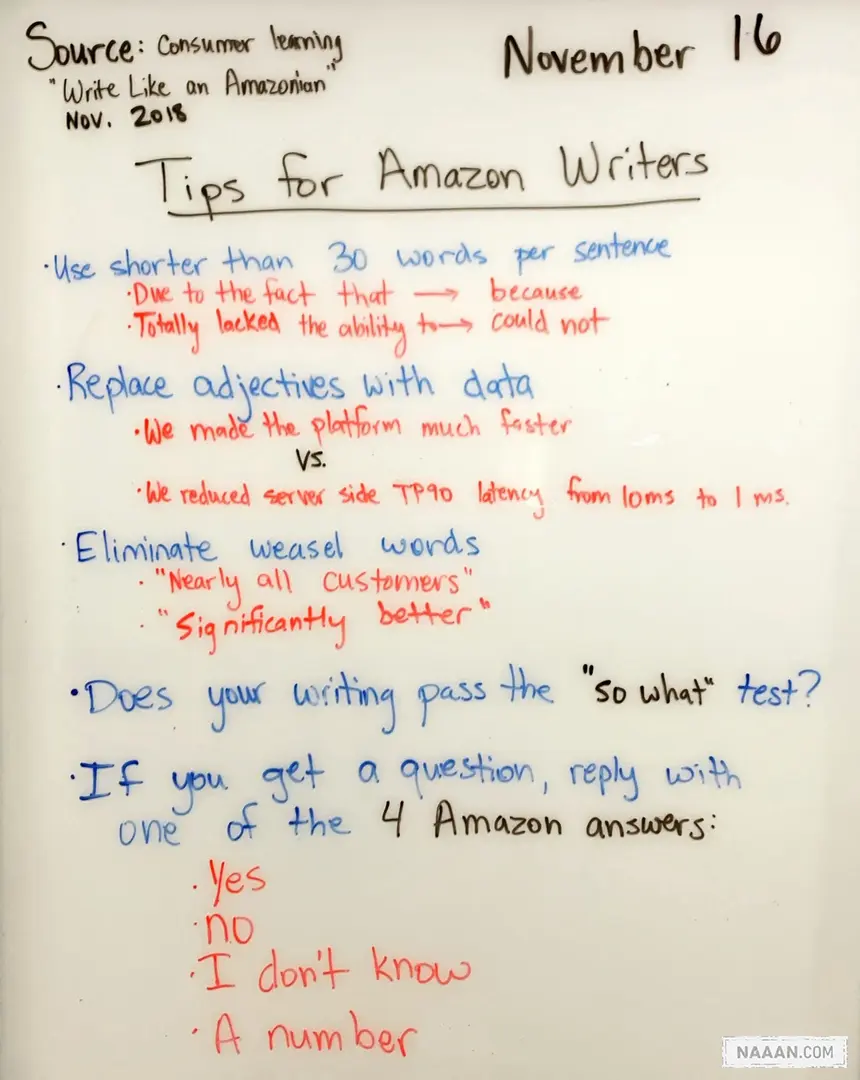 Source: Consumer learning
"Write Like an Amazonian"
Nov. 2018
November 16
Tips for Amazon Writers
·Use shorter than 30 words per sentence
·Due to the fact that → because
·Totally lacked the ability to → could not
·Replace adjectives with data
·We made the platform much faster
VS.
·We reduced server side TP90 latency from 10ms to 1 ms.
·Eliminate weasel words
·"Nearly all customers"
·"Significantly better"
·Does your writing pass the "so what" test?
·If you get a question, reply with
one of the 4 Amazon answers:
·Yes
·no
·I don't know
·A number
NAAAN.COM